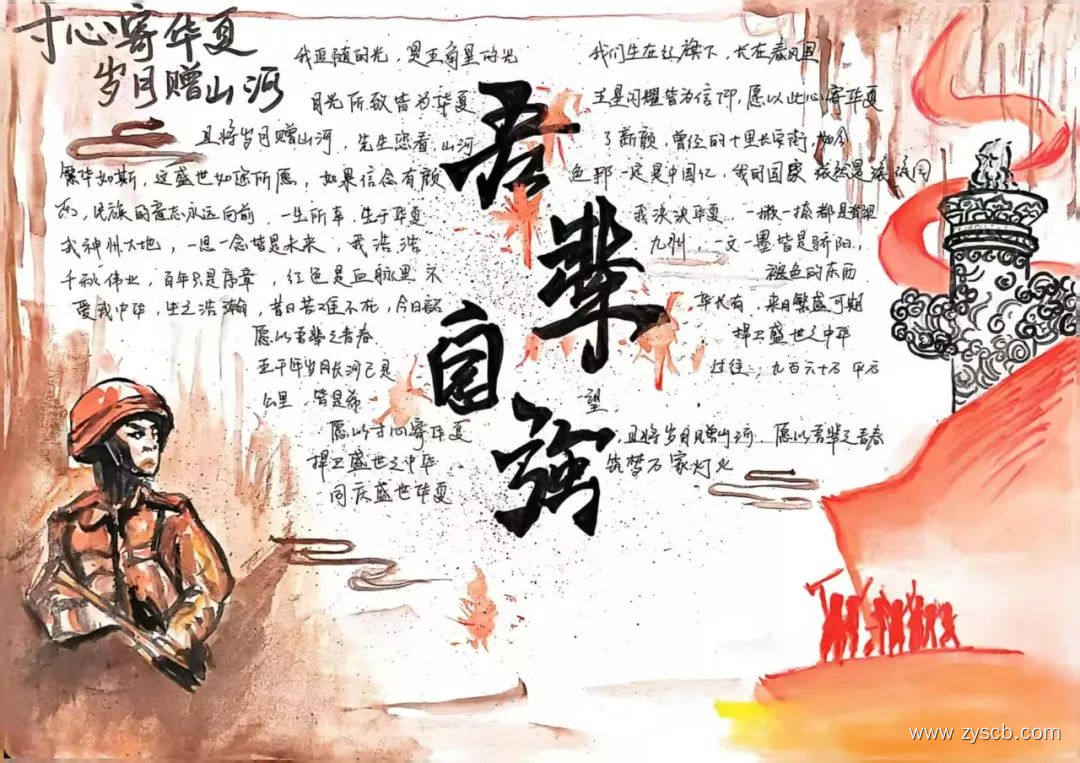 寸心寄华夏
岁月赠山河
吾辈自强
我追随的光,是五角星的光
我们生在红旗下,长在春风里
目光所致皆为华夏
五星闪耀皆为信仰,愿以此心寄华夏
且将岁月赠山河,先生您看,山河
了新颜,曾经的十里长安街,如今
繁华如斯,这盛世如您所愿,如果信念有颜
色那一定是中国红,我的国家依然是
而,民族的意志永远向前,一生所幸,生于华夏
我泱泱华夏,一撇一捺都是
我神州大地,一思一念皆是未来,我浩浩
九州,一文一墨皆是骄阳,
千秋伟业,百年只是序章,红色是血脉里不
褪色的东西
爱我中华,生之浩瀚,昔日苦难不在,今日韶
华长有,来日繁盛可期
愿以吾辈之青春
捍卫盛世之中华
五千年岁月长河已是
过往,九百六十万平方
公里,皆是希
望
愿以寸心寄华夏
,且将岁月赠山河,愿以吾辈之青春
捍卫盛世之中华
筑梦万家灯火
同庆盛世华夏
www.zyscb.com